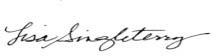 Lisa Singleterry